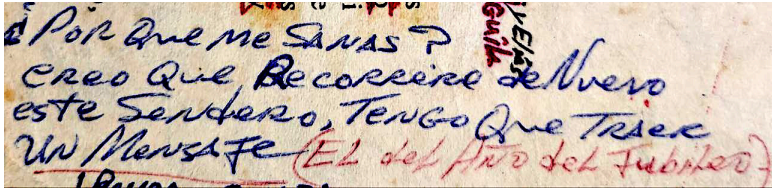 ¿POR Que Me SANAS?
creo Que Recorrere de Nuevo
este Sendero, TENGO Que TRAER
UN MENSAJE (EL del AÑO del JUBILEO)